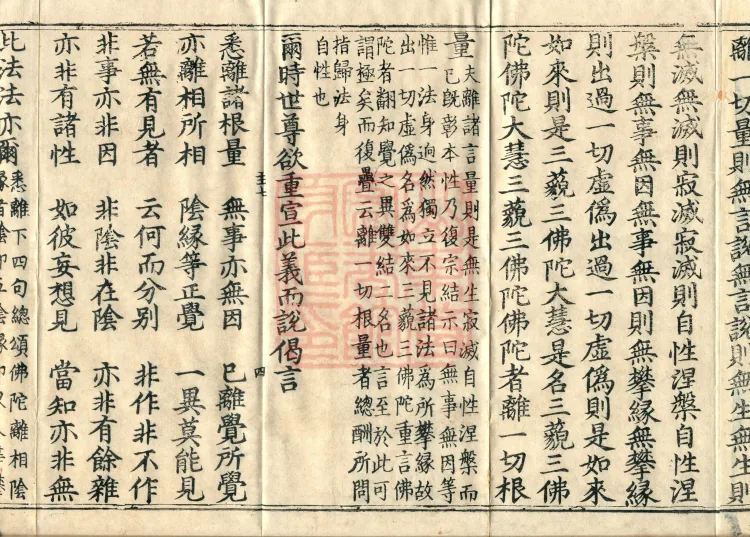 離一切量則無言說無言說則無生無生則
無滅無滅則寂滅寂滅則自性涅槃自性涅
槃則無事無因無事無因則無攀緣無攀緣
則出過一切虛僞出過一切虛僞則是如來
如來則是三藐三佛陀大慧是名三藐三佛
陀佛陀大慧三藐三佛陀佛陀者離一切根
量夫離諸言量則是無生寂滅自性涅槃而
已旣彰本性乃復宗結示曰無事無因等
惟一法身逈然獨立不見諸法爲所攀緣故
出一切虛僞名爲如來三藐三佛陀重言佛
陀者翻知覺之異雙結二名也言至於此可
謂極矣而復疊云離一切根量者總酬所問
指歸法身
自性也
爾時世尊欲重宣此義而說偈言
悉離諸根量 無事亦無因 已離覺所覺
亦離相所相 陰緣等正覺 一異莫能見
若無有見者 云何而分别 非作非不作
非事亦非因 非陰非在陰 亦非有餘雜
亦非有諸性 如彼妄想見 當知亦非無
此法法亦爾悉離下四句總頌佛陀離相陰